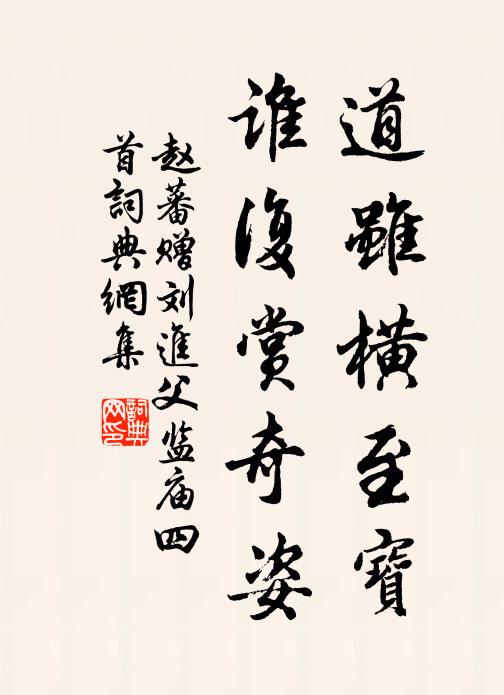 道雖橫至寶
谁復赏奇姿
赵蕃赠刘進父监庙四
首詞典網集
詞典
网印